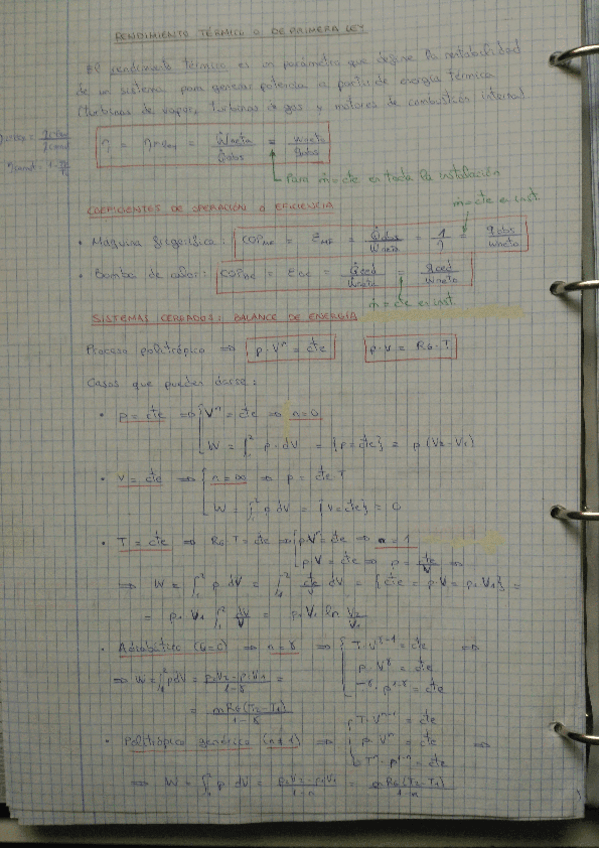 RENDIMIENTO TÉRMICO O DE PRIMERA LEY
El rendimiento térmico es un parámetro que define la rentabilidad
de un sistema para generar potencia a partir de energía térmica
(turbinas de vapor, turbinas de gas y motores de combustión interna)
η = = Ẇneta / Q̇abs = wneto / qabs
Para ṁ = cte en toda la instalación
COEFICIENTES DE OPERACIÓN O EFICIENCIA
ṁ = cte en inst.
• Máquina frigorífica: COPMF = εMF = Q̇abs / Ẇneta = 1/η = qabs / wneto
• Bomba de calor: COPBC = εBC = Q̇ced / Ẇneta = qced / wneto
ṁ = cte en inst
SISTEMAS CERRADOS: BALANCE DE ENERGÍA
Proceso politrópico ⇒ p·Vⁿ = cte p·v = RG·T
Casos que pueden darse:
• p = cte ⇒ Vⁿ = cte ⇒ n=0
W = ∫₁² p·dV = {p=cte} = p(V₂-V₁)
• V = cte ⇒ n=∞ ⇒ p = cte T
W = ∫₁² p dV = {V=cte} = 0
• T = cte ⇒ RG T = cte ⇒ p·V = cte ⇒ n = 1
p·V = cte ⇒ p = cte/V ⇒
⇒ W = ∫₁² p dV = ∫₁² cte/V dV = {cte = p·V = p₁V₁} =
= p₁ V₁ ∫₁² dV/V = p₁V₁ ln V₂/V₁
• Adiabático (Q=0) ⇒ n=γ ⇒ T·V^γ-1 = cte ⇒
p·V^γ = cte
T^γ·p^1-γ = cte
⇒ W = ∫₁² p dV = (p₂V₂-p₁V₁)/(1-γ) =
= mRG(T₂-T₁)/(1-γ)
• Politrópico genérico (n≠1) ⇒ T·Vⁿ⁻¹ = cte
p·Vⁿ = cte ⇒
Tⁿ·p¹⁻ⁿ = cte
⇒ W = ∫₁² p dV = (p₂V₂-p₁V₁)/(1-n) = mRG(T₂-T₁)/(1-n)